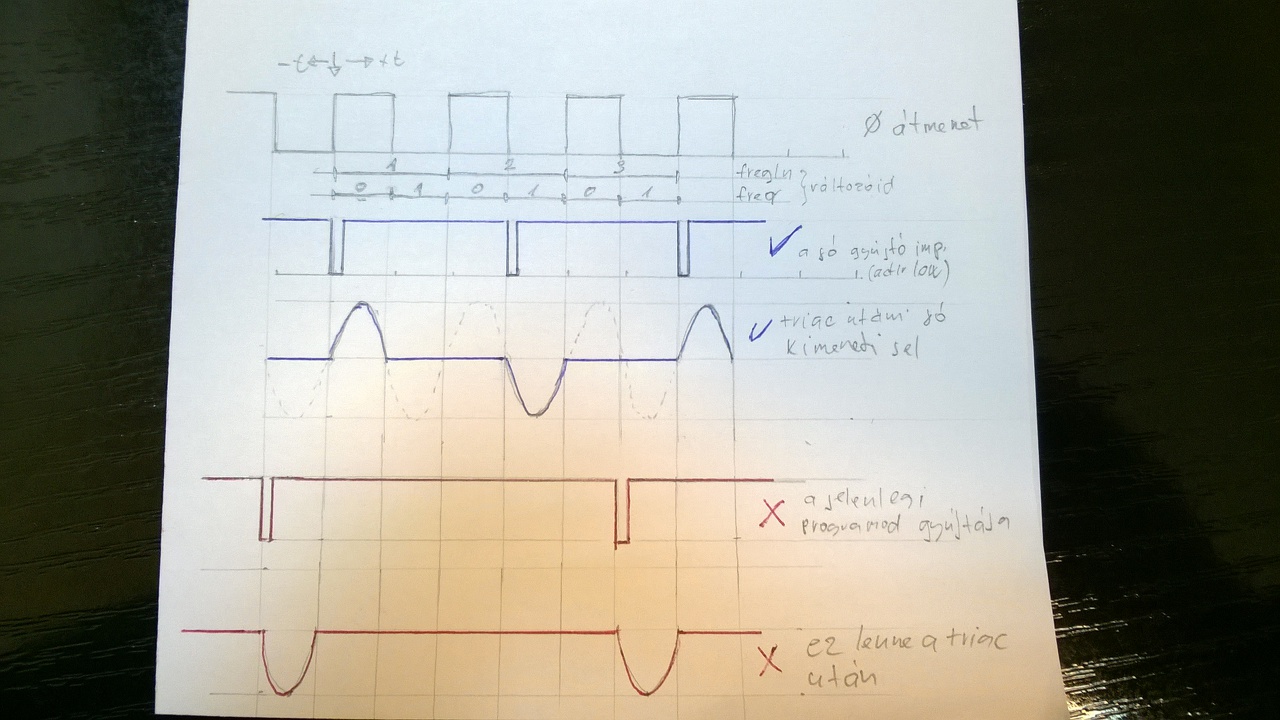 -t ← ↓ → +t
Ø átmenet
1 2 3 freqIn
0 1 0 1 0 1 freq
változóid
a jó gyújtó imp.
(actív low)
triac utáni jó
kimeneti jel
a jelenlegi
programod gyújtása
ez lenne a triac
után